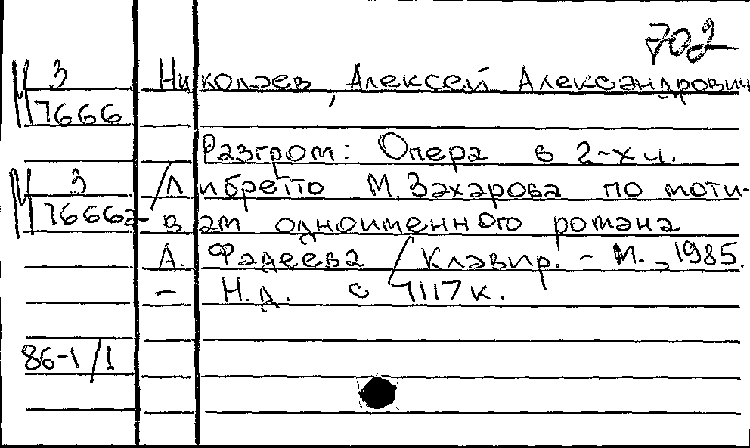 702
М 3 Николаев, Алексей Александрович
7666
Разгром: Опера в 2-х ч.
М 3 /Либретто М. Захарова по моти-
7666а вам одноименного романа
А. Фадеева / Клавир. - М., 1985.
- Н.Д. с 7117к.
86-1/1